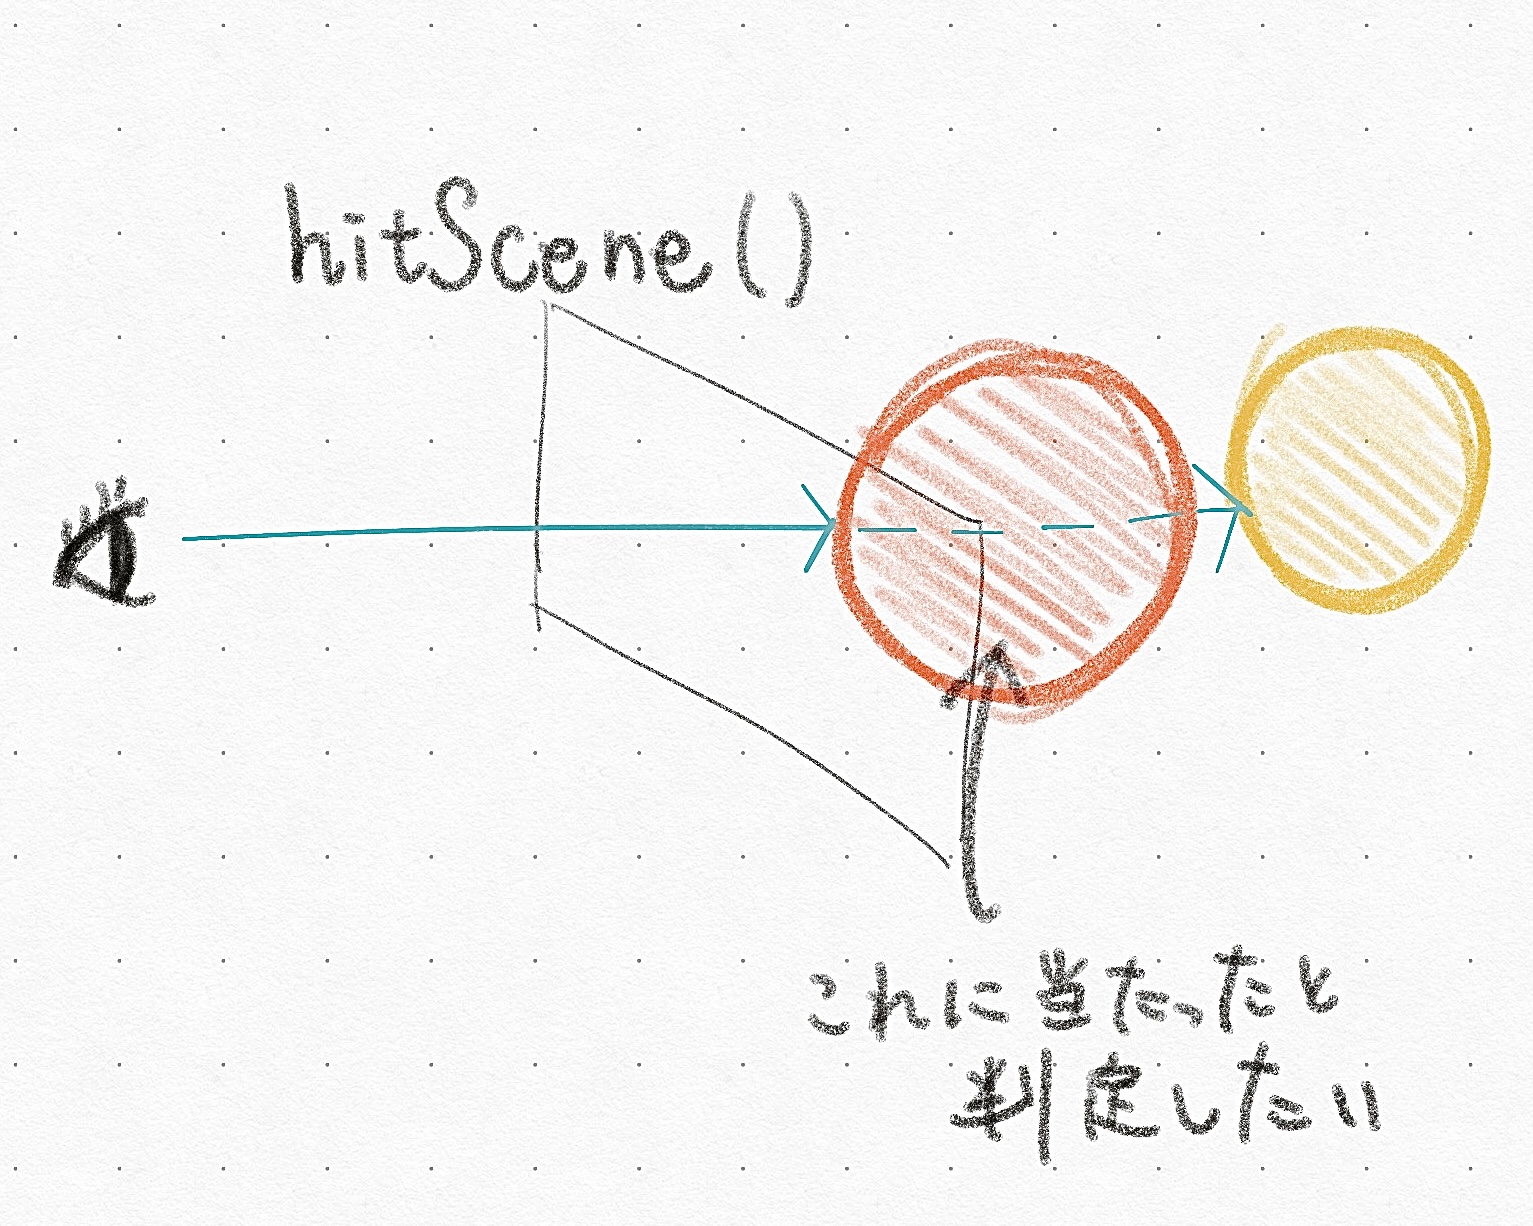 hitScene()
これに当たったと
判定したい